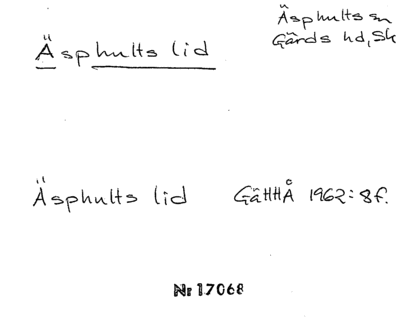 Äsphults lid
Äsphults sn
Gärds hd, Sk
Äsphults lid GäHHÅ 1962:8f.
Nr 17068